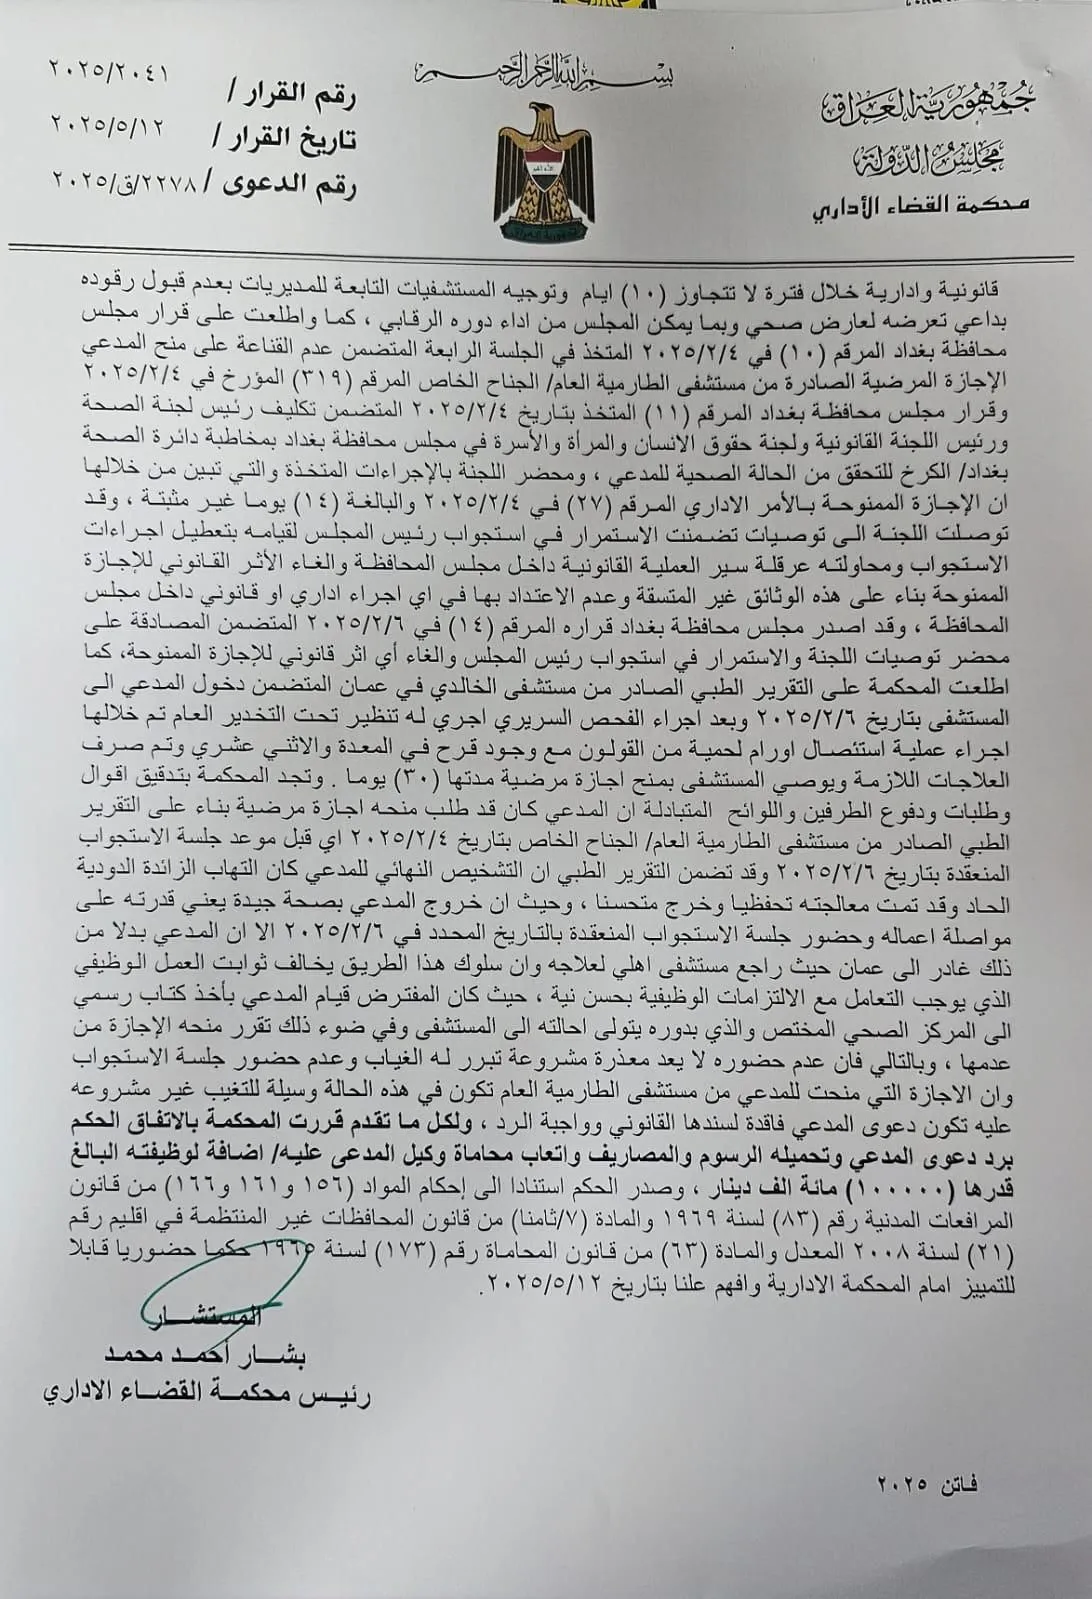 بسم الله الرحمن الرحيم
جمهورية العراق
مجلس الدولة
محكمة القضاء الأداري
رقم القرار / ٢٠٢٥/٢٠٤١
تاريخ القرار / ٢٠٢٥/٥/١٢
رقم الدعوى / ٢٢٧٨/ق/٢٠٢٥
قانونية وادارية خلال فترة لا تتجاوز (١٠) ايام وتوجيه المستشفيات التابعة للمديريات بعدم قبول رقوده
بداعي تعرضه لعارض صحي وبما يمكن المجلس من اداء دوره الرقابي ، كما واطلعت على قرار مجلس
محافظة بغداد المرقم (١٠) في ٢٠٢٥/٢/٤ المتخذ في الجلسة الرابعة المتضمن عدم القناعة على منح المدعي
الإجازة المرضية الصادرة من مستشفى الطارمية العام/ الجناح الخاص المرقم (٣١٩) المؤرخ في ٢٠٢٥/٢/٤
وقرار مجلس محافظة بغداد المرقم (١١) المتخذ بتاريخ ٢٠٢٥/٢/٤ المتضمن تكليف رئيس لجنة الصحة
ورئيس اللجنة القانونية ولجنة حقوق الانسان والمرأة والأسرة في مجلس محافظة بغداد بمخاطبة دائرة الصحة
بغداد/ الكرخ للتحقق من الحالة الصحية للمدعي ، ومحضر اللجنة بالإجراءات المتخذة والتي تبين من خلالها
ان الإجازة الممنوحة بالأمر الاداري المرقم (٢٧) في ٢٠٢٥/٢/٤ والبالغة (١٤) يوما غير مثبتة ، وقد
توصلت اللجنة الى توصيات تضمنت الاستمرار في استجواب رئيس المجلس لقيامه بتعطيل اجراءات
الاستجواب ومحاولته عرقلة سير العملية القانونية داخل مجلس المحافظة والغاء الأثر القانوني للإجازة
الممنوحة بناء على هذه الوثائق غير المتسقة وعدم الاعتداد بها في اي اجراء اداري او قانوني داخل مجلس
المحافظة ، وقد اصدر مجلس محافظة بغداد قراره المرقم (١٤) في ٢٠٢٥/٢/٦ المتضمن المصادقة على
محضر توصيات اللجنة والاستمرار في استجواب رئيس المجلس والغاء أي اثر قانوني للإجازة الممنوحة، كما
اطلعت المحكمة على التقرير الطبي الصادر من مستشفى الخالدي في عمان المتضمن دخول المدعي الى
المستشفى بتاريخ ٢٠٢٥/٢/٦ وبعد اجراء الفحص السريري اجري له تنظير تحت التخدير العام تم خلالها
اجراء عملية استئصال اورام لحمية من القولون مع وجود قرح في المعدة والاثني عشري وتم صرف
العلاجات اللازمة ويوصي المستشفى بمنح اجازة مرضية مدتها (٣٠) يوما . وتجد المحكمة بتدقيق اقوال
وطلبات ودفوع الطرفين واللوائح المتبادلة ان المدعي كان قد طلب منحه اجازة مرضية بناء على التقرير
الطبي الصادر من مستشفى الطارمية العام/ الجناح الخاص بتاريخ ٢٠٢٥/٢/٤ اي قبل موعد جلسة الاستجواب
المنعقدة بتاريخ ٢٠٢٥/٢/٦ وقد تضمن التقرير الطبي ان التشخيص النهائي للمدعي كان التهاب الزائدة الدودية
الحاد وقد تمت معالجته تحفظيا وخرج متحسنا ، وحيث ان خروج المدعي بصحة جيدة يعني قدرته على
مواصلة اعماله وحضور جلسة الاستجواب المنعقدة بالتاريخ المحدد في ٢٠٢٥/٢/٦ الا ان المدعي بدلا من
ذلك غادر الى عمان حيث راجع مستشفى اهلي لعلاجه وان سلوك هذا الطريق يخالف ثوابت العمل الوظيفي
الذي يوجب التعامل مع الالتزامات الوظيفية بحسن نية ، حيث كان المفترض قيام المدعي بأخذ كتاب رسمي
الى المركز الصحي المختص والذي بدوره يتولى احالته الى المستشفى وفي ضوء ذلك تقرر منحه الإجازة من
عدمها ، وبالتالي فان عدم حضوره لا يعد معذرة مشروعة تبرر له الغياب وعدم حضور جلسة الاستجواب
وان الاجازة التي منحت للمدعي من مستشفى الطارمية العام تكون في هذه الحالة وسيلة للتغيب غير مشروعه
عليه تكون دعوى المدعي فاقدة لسندها القانوني وواجبة الرد ، ولكل ما تقدم قررت المحكمة بالاتفاق الحكم
برد دعوى المدعي وتحميله الرسوم والمصاريف واتعاب محاماة وكيل المدعى عليه/ اضافة لوظيفته البالغ
قدرها (١٠٠٠٠٠) مائة الف دينار ، وصدر الحكم استنادا الى إحكام المواد (١٥٦ و١٦١ و١٦٦) من قانون
المرافعات المدنية رقم (٨٣) لسنة ١٩٦٩ والمادة (٧/ثامنا) من قانون المحافظات غير المنتظمة في اقليم رقم
(٢١) لسنة ٢٠٠٨ المعدل والمادة (٦٣) من قانون المحاماة رقم (١٧٣) لسنة ١٩٦٥ حكما حضوريا قابلا
للتمييز امام المحكمة الادارية وافهم علنا بتاريخ ٢٠٢٥/٥/١٢.
المستشار
بشار أحمد محمد
رئيس محكمة القضاء الاداري
فاتن ٢٠٢٥